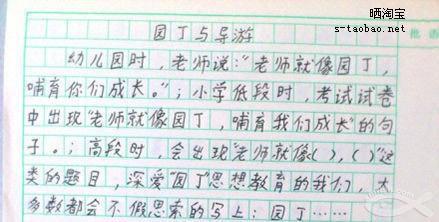 晒淘宝
s-taobao.net
批语
园丁与导游
幼儿园时，老师说：“老师就像园丁，
哺育你们成长。”；小学低段时，考试试卷
中出现“老师就像园丁，哺育我们成长”的句
子。；高段时，会出现“老师就像（ ），（ ）”这
类的题目，深爱“园丁”思想教育的我们，大
多数都会不假思索的写上：园丁……